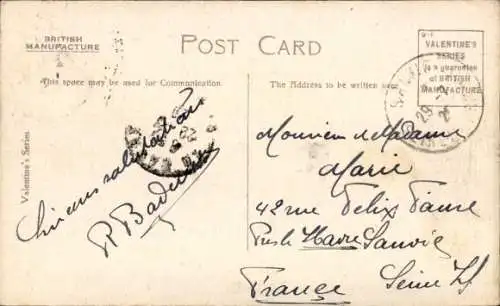 BRITISH
MANUFACTURE
POST CARD
VALENTINE'S
SERIES
is a guarantee
of BRITISH
MANUFACTURE
This space may be used for Communication.
The Address to be written
Valentine's Series
salutations
Monsieur et Madame
Marie
42 rue Felix Faure
Havre Sanvic
France Seine